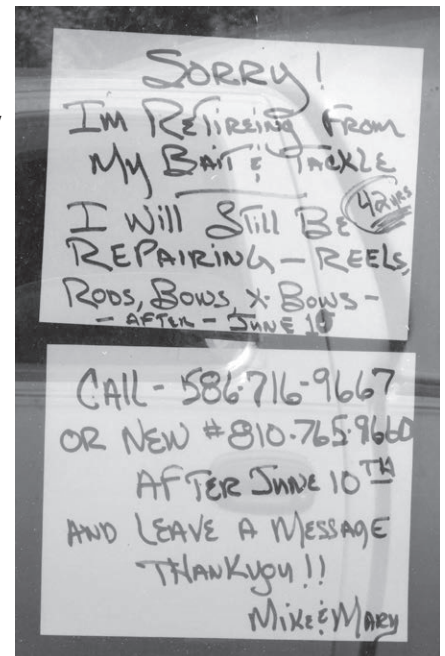 SORRY!
IM RETIREING FROM
MY BAIT & TACKLE
42 YRS
I WILL STILL BE
REPAIRING - REELS,
RODS, BOWS, X-BOWS -
- AFTER - JUNE 10
CALL - 586-716-9667
OR NEW # 810-765-9660
AFTER JUNE 10TH
AND LEAVE A MESSAGE
THANKYOU!!
MIKE & MARY